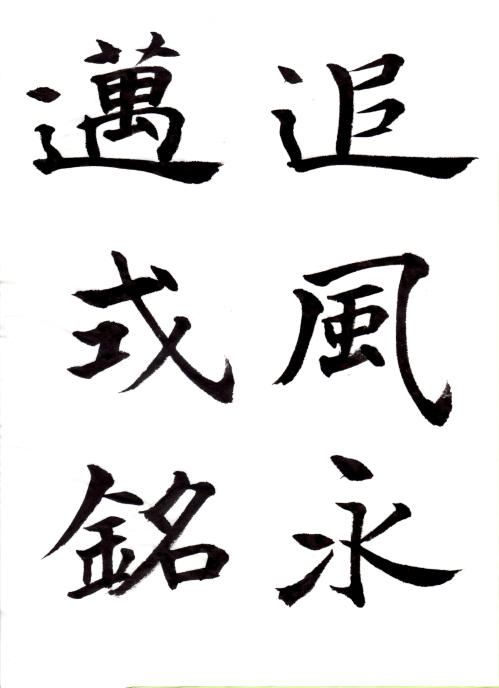 追風永
邁式銘